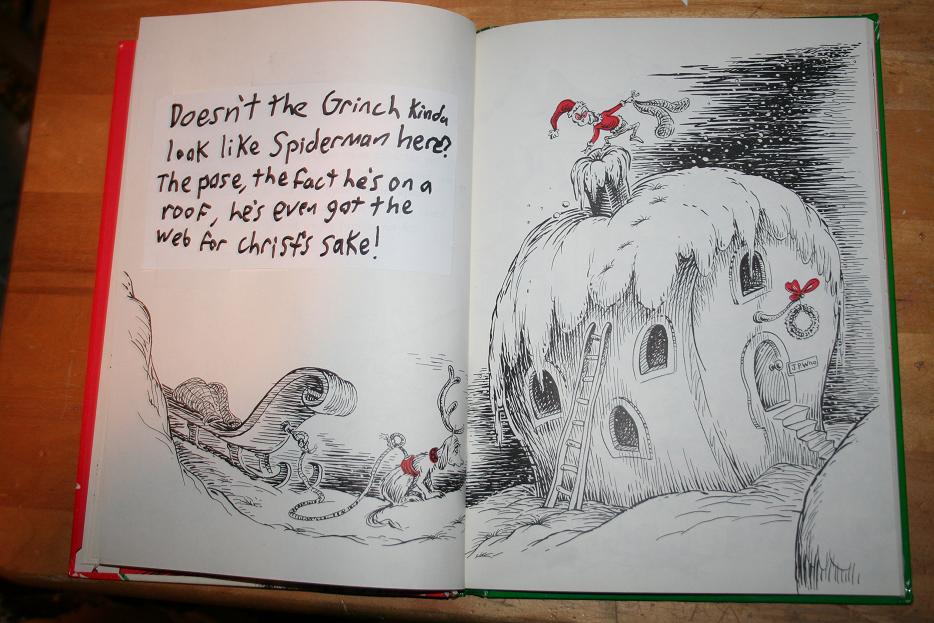 Doesn't the Grinch Kinda
look like Spiderman here?
The pose, the fact he's on a
roof, he's even got the
web for christ's sake!
J.P.Who